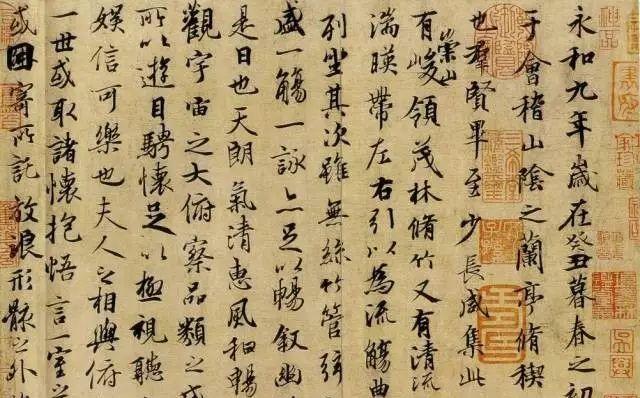 永和九年歲在癸丑暮春之初
于會稽山陰之蘭亭脩稧
也羣賢畢至少長咸集此
有崇山峻領茂林脩竹又有清流
湍暎帶左右引以為流觴曲
列坐其次雖無絲竹管弦
盛一觴一詠亦足以暢叙幽
是日也天朗氣清惠風和暢
觀宇宙之大俯察品類之盛
所以遊目騁懷足以極視聽
娛信可樂也夫人之相與俯
一世或取諸懷抱悟言一室之
或因寄所託放浪形骸之外